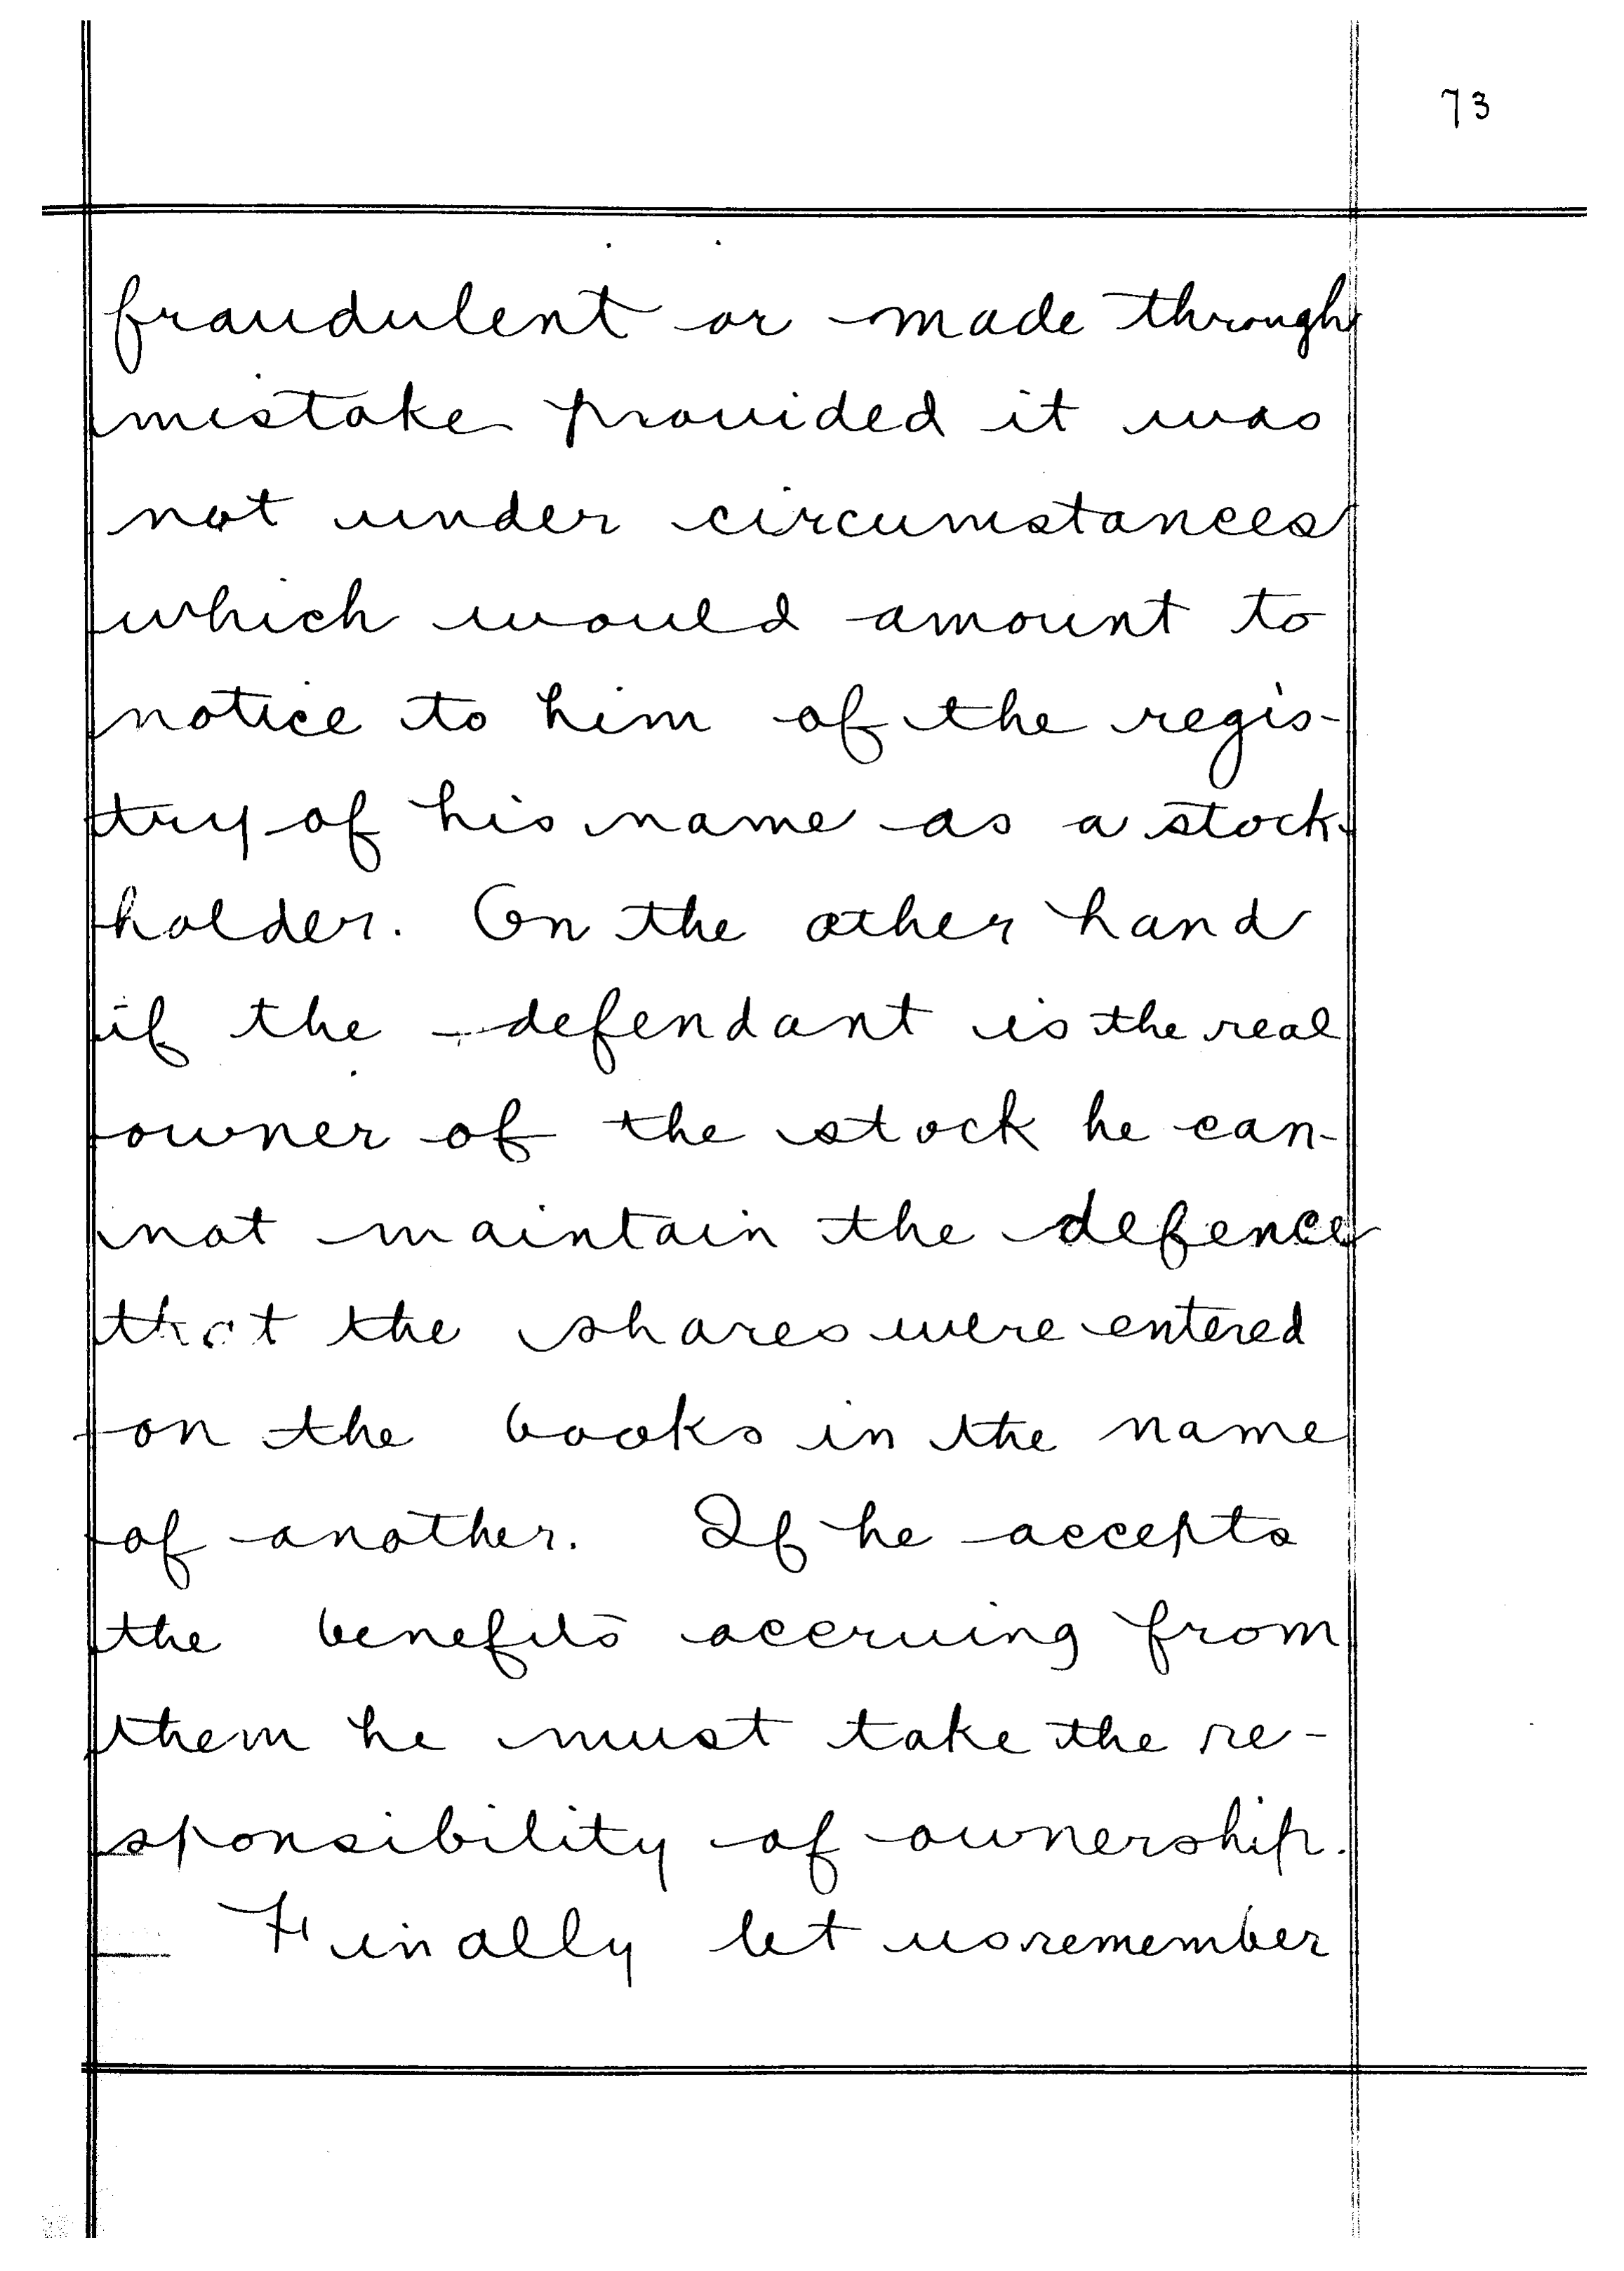 73
fraudulent or made through
mistake provided it was
not under circumstances
which would amount to
notice to him of the regis-
try of his name as a stock-
holder. On the other hand
if the defendant is the real
owner of the stock he can-
not maintain the defence
that the shares were entered
on the books in the name
of another. If he accepts
the benefits accruing from
them he must take the re-
sponsibility of ownership.
Finally let us remember